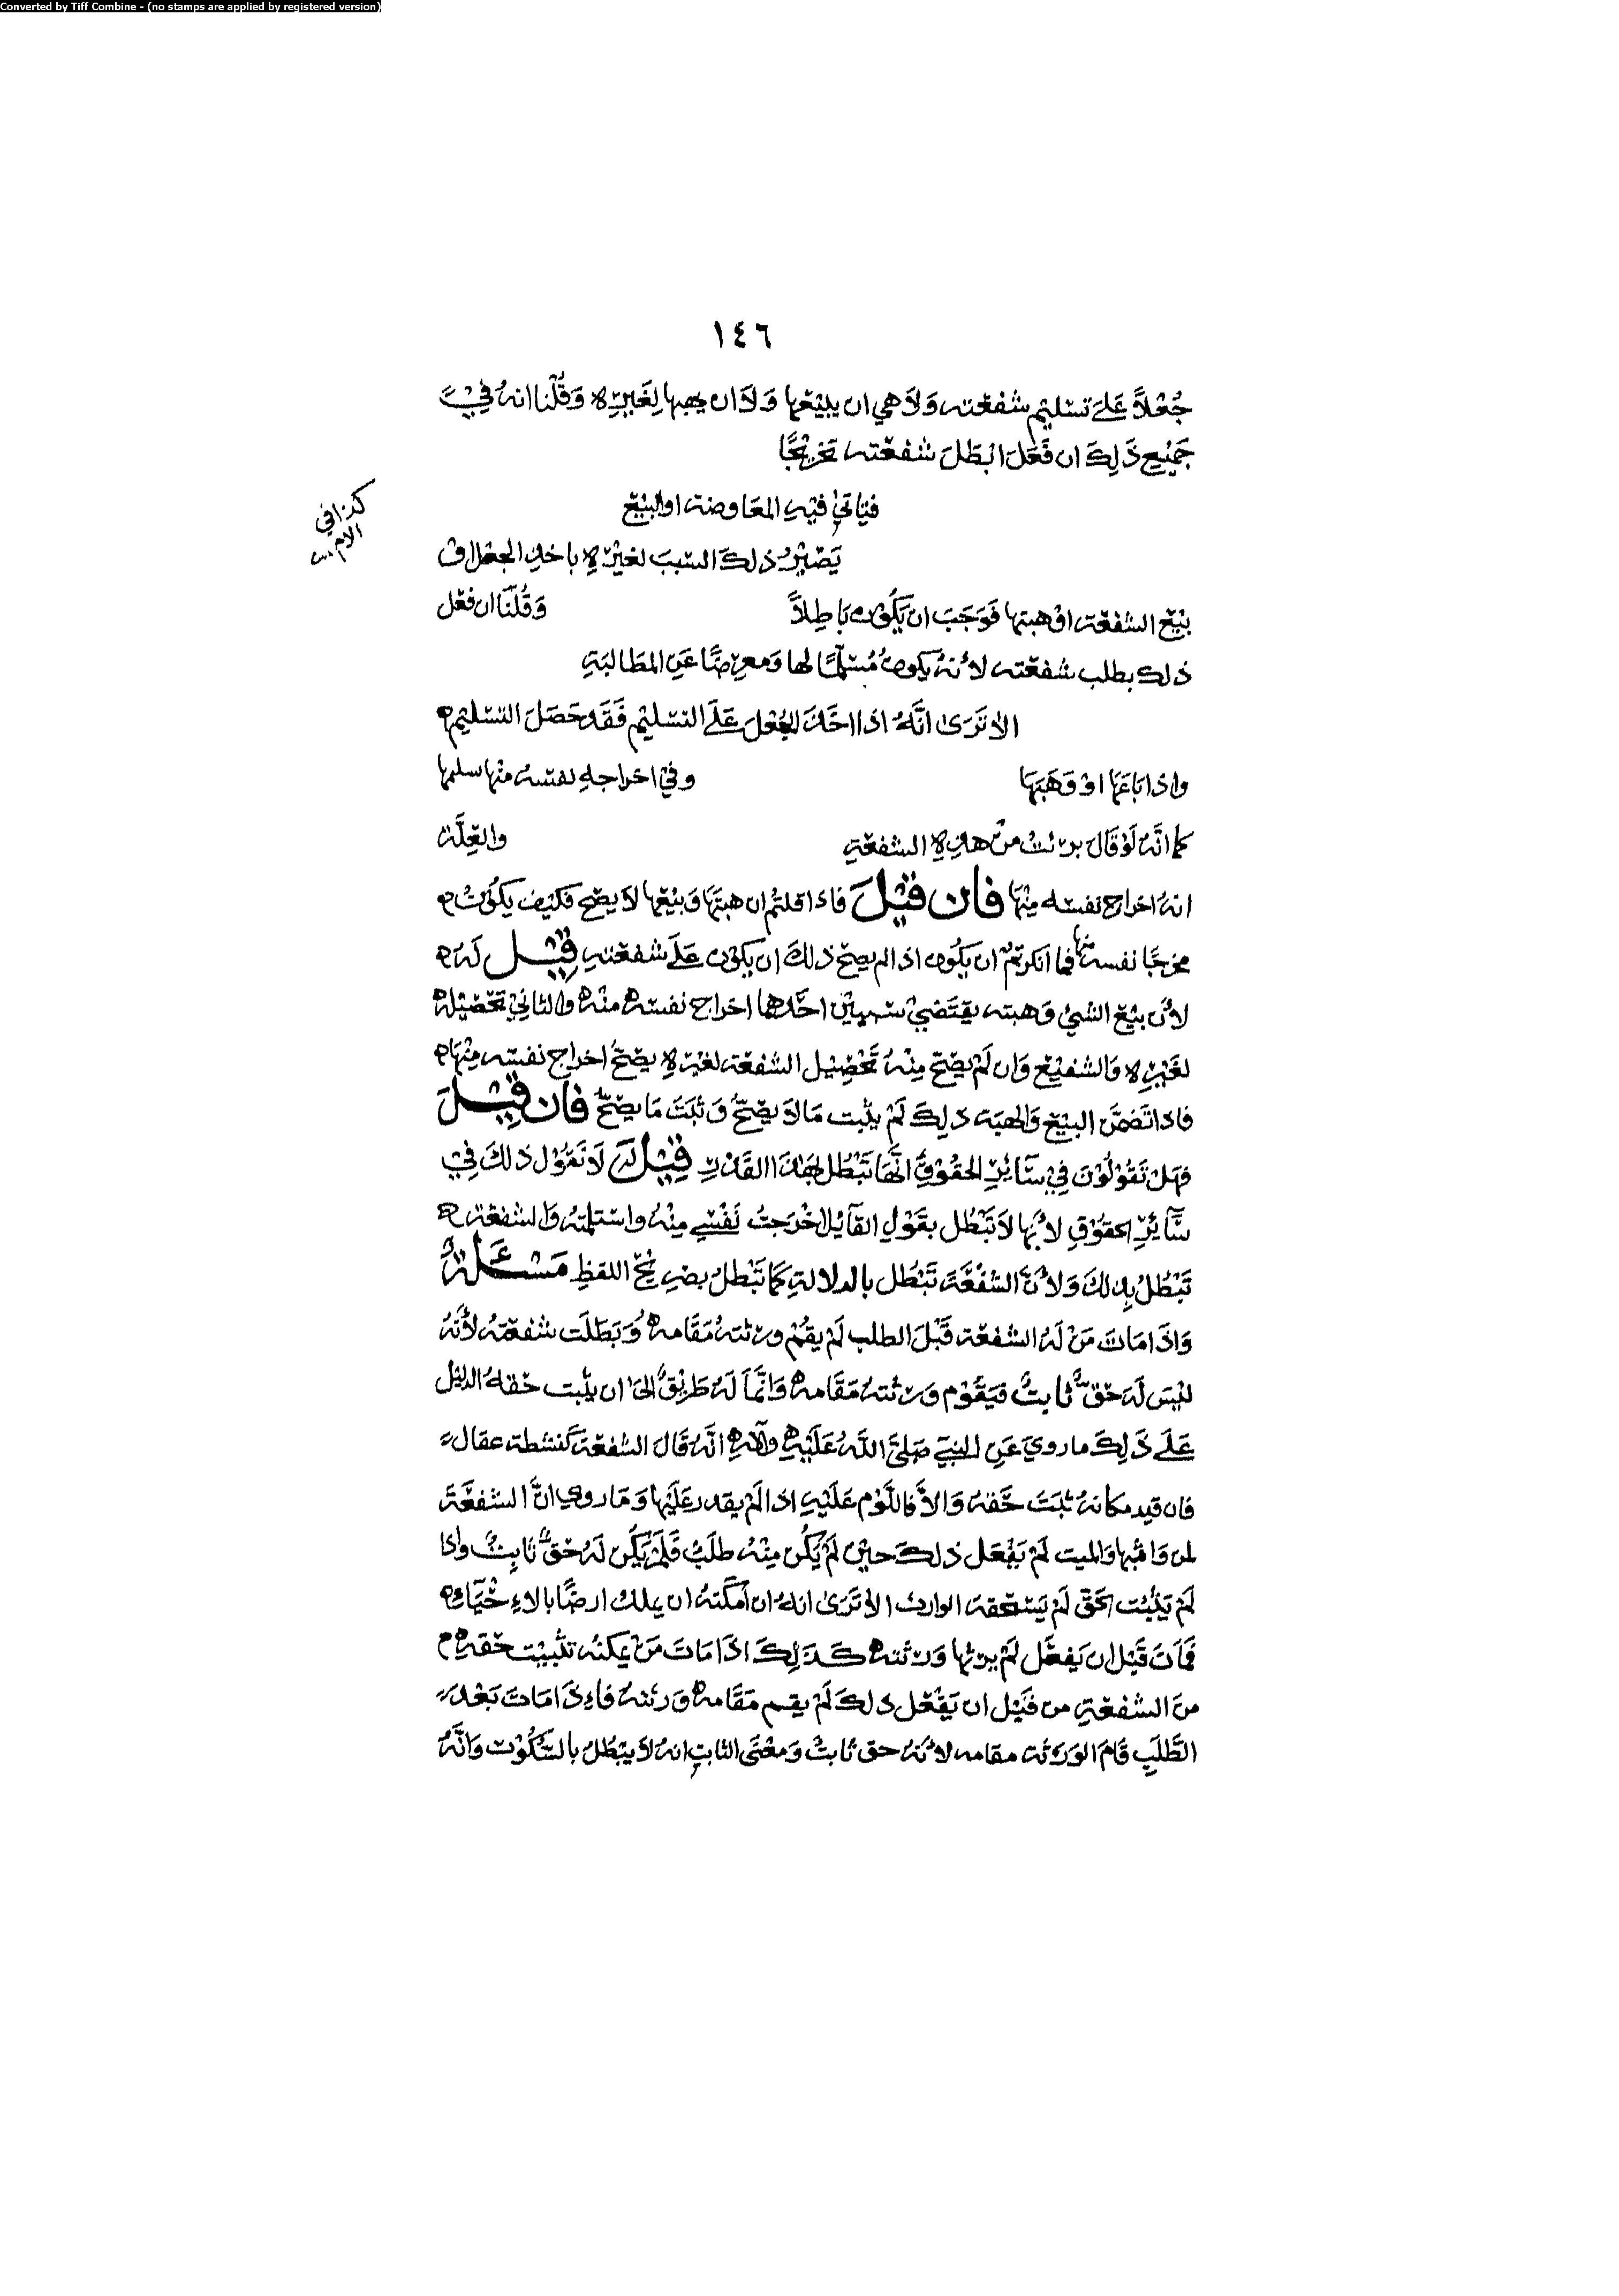 Converted by Tiff Combine - (no stamps are applied by registered version)
١٤٦
جُعْلاً عَلَى تسليم شفعته وَلاَ هي ان يبيعها وَلاَ ان يهبها لِغَيْرِه وَقُلْنا انهُ فيْ
جَمِيْع ذَلِكَ ان فَعَلَ ابْطَلَ شفعته تخريجًا
فيأتي فيهِ المعَاوضة او البيْع
كذا في
الام
يَصِيْرُ ذلكَ السّبَبَ لغيْرِه باخذِ الجعْل او
بيْع الشفعَة اوْ هبتها فوَجَبَ ان يَكُوْن بَاطِلاً وَقُلْنَا ان فعَل
ذلك بطلب شفعَته لأنهُ يكون مُسَلِّمًا لها وَمعرضًا عَنِ المطَالبَةِ
الاتَرَىٰ انَّهُ اذا اخَذَ الجُعْلَ عَلَى التسْليْم فَقَد حَصَلَ التسْليْم
واذا بَاعَهَا اوْ وَهَبَهَا وفيْ اخراجهِ نفسَهُ منْها سلمها
كما انَّهُ لَوْ قَالَ برئت منْ هذِهِ الشفعَةِ والعِلَّة
انهُ اخراج نفسه مِنْها فان قِيْلَ فاذا قلتمْ ان هبتَهَا وَبيْعَها لاَ يصح فكيْف يكوْن
مخرجًا نفسه منها فما انكرتمْ ان يكُون اذا لم يصحّ ذلكَ ان يكوْن عَلَى شفعَته قِيْل لَهُ
لأن بيْع الشيْ وَهبته يقتَضيْ شيئين احَدهما اخراج نفسه منْه والثانيْ تحْصيْله
لغَيْرِه وَالشفيْع وَان لَمْ يصحّ مِنْهُ تحْصِيْل الشفْعَة لغيْرِه يصحّ اخراج نفسه مِنْها
فاذا تضمَّنَ البيْع وَالهبَة ذلِكَ لَمْ يثبت مَا لاَ يصحّ وَثبَتَ مَا يصحّ فان قِيْلَ
فهَلْ تَقُوْلُوْنَ فيْ سَآئِرِ الحقوْقِ انَّهَا تَبْطُل بهَذَا القَدْرِ قِيْلَ لَهُ لاَ نَقُوْل ذلكَ فيْ
سَآئِرِ الحقوْقِ لأنها لاَ تَبْطُل بقَوْلِ القَآئِل اخْرَجتُ نَفْسِي مِنْهُ واستلمتهُ وَالشفعَة
تَبْطُلُ بِذلكَ وَلأنَّ الشّفْعَةَ تَبْطُل بالدلالةِ كمَا تَبْطلُ بصريْحِ اللفظِ مَسْئَلَةٌ
وَاذَا مَاتَ مَنْ لَهُ الشفعَة قَبْلَ الطلب لَمْ يقُمْ ورثتهُ مَقَامه وَبَطَلَت شفعَتهُ لأنَّهُ
ليْسَ لَهُ حَقٌّ ثابتٌ فيَقُوْم وَرثتهُ مَقَامه وَانَّمَا لَهُ طَرِيْقٌ الىٰ ان يثبت حَقهُ الدليْل
عَلَى ذَلِكَ ما رويَ عَنِ النبي صَلَّىَ اللَّهُ عَلَيْهِ وَآلِهِ انَّهُ قَالَ الشفعَة كنشطة عقال
فان قيد مكانهُ ثبَتَ حَقّهُ وَالاَّ فاللَّوْم عَلَيْهِ اذا لَمْ يقدر عَلَيْها وَمَا روي انَّ الشفْعَةَ
لمن وَاثبها وَالميت لَمْ يَفْعَل ذلكَ حيْن لَمْ يَكُن مِنْهُ طلَبٌ فلَمْ يَكُن لَهُ حَقٌّ ثَابِتٌ وَاذا
لَمْ يَثْبُت الحَقّ لَمْ يَسْتحقه الوارث الاتَرَىٰ انهُ ان امكَنَهُ ان يملك ارضًا بالاِءحْيَآءِ
فمَاتَ قَبْل ان يَفْعَل لَمْ يرثها وَرثته كَذَلِكَ اذَا مَاتَ مَنْ يمكنهُ تثبيْت حَقهِ
منَ الشفعَةِ من قَبْل ان يَفْعَل ذلكَ لَمْ يقم مَقَامه وَرثتهُ فاِءذَا مَاتَ بَعْد
الطَّلَبِ قَامَ الوَرَثَة مقامه لأنَّهُ حق ثابتٌ وَمعْنَى الثابت انهُ لاَ يبْطُل بالسُّكُوْت وَانَّهُ